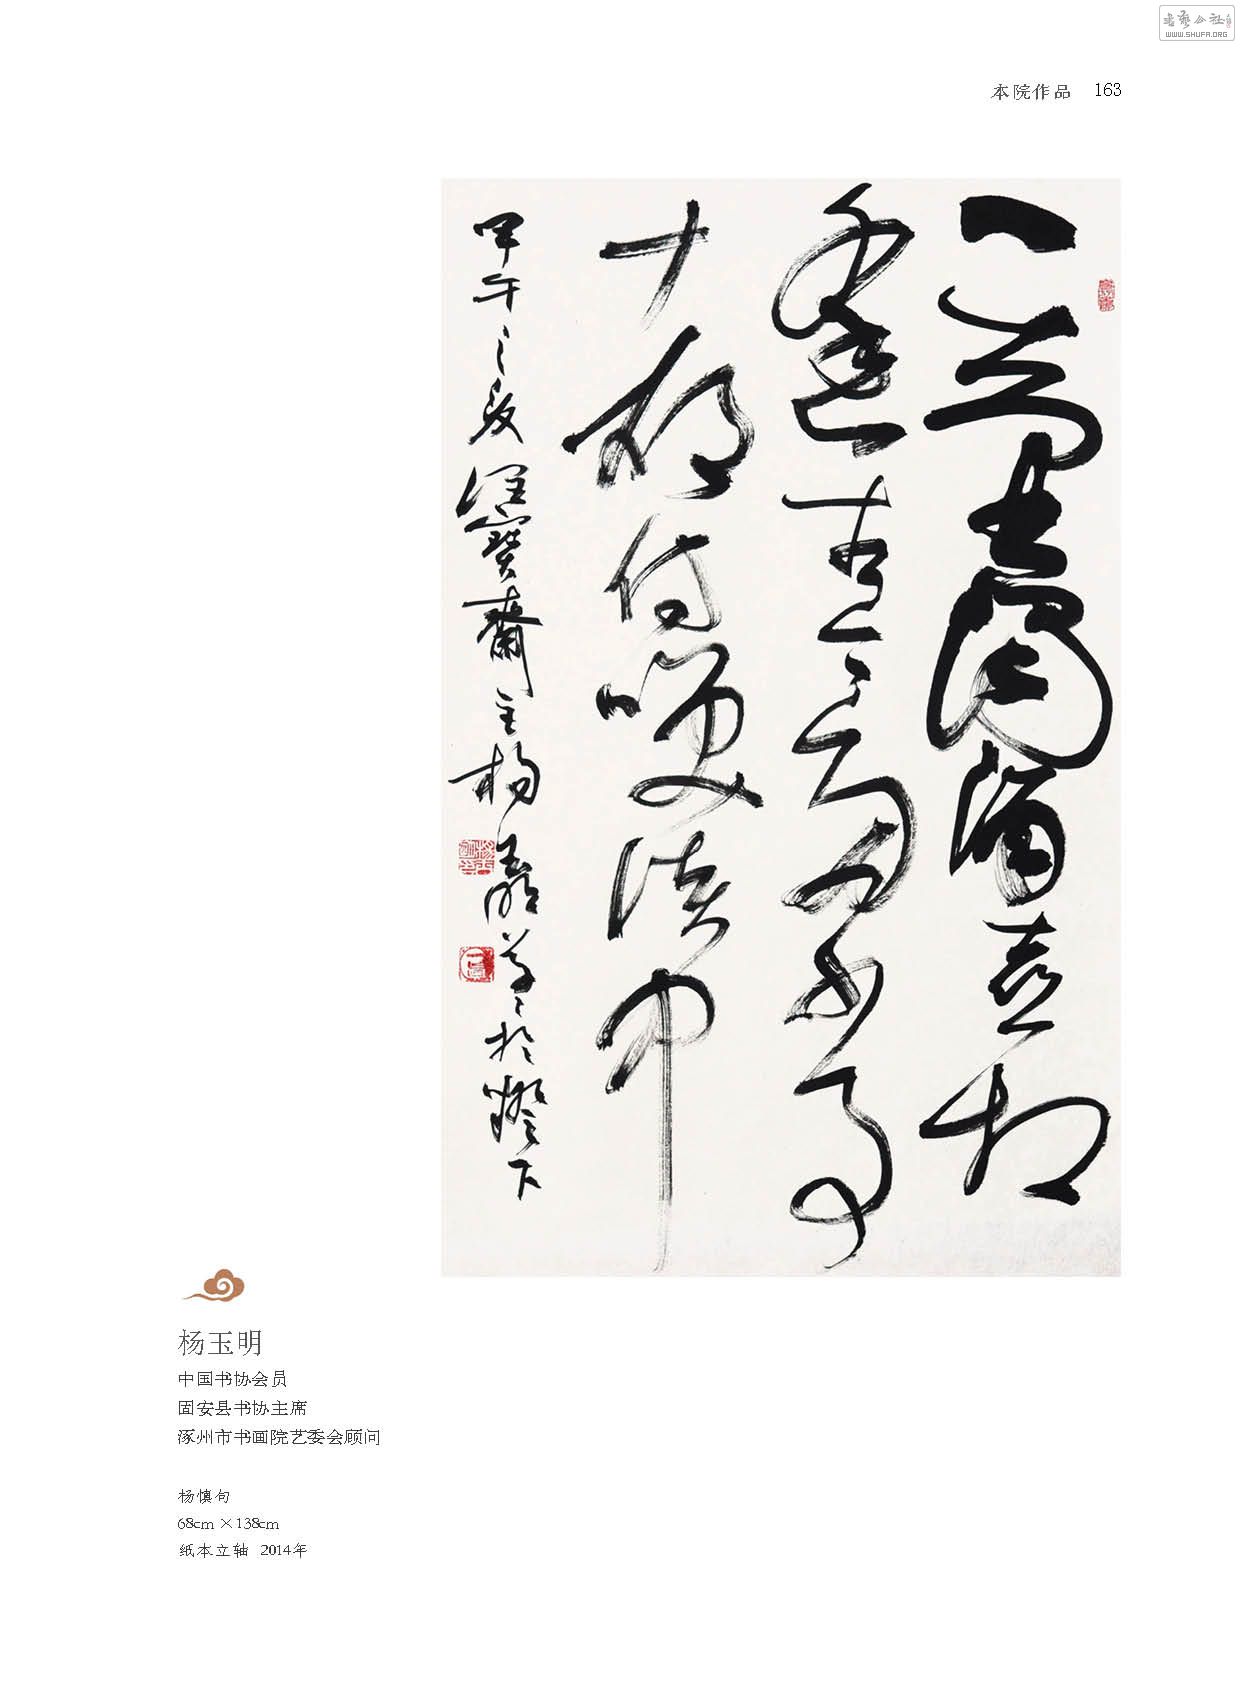 書藝公社
WWW.SHUFA.ORG
本院作品 163
一壺濁酒喜相
逢古今多少事
都付笑談中
甲午之夏 寶齋主楊玉明草於燈下
杨玉明
中国书协会员
固安县书协主席
涿州市书画院艺委会顾问
杨慎句
68cm×138cm
纸本立轴 2014年